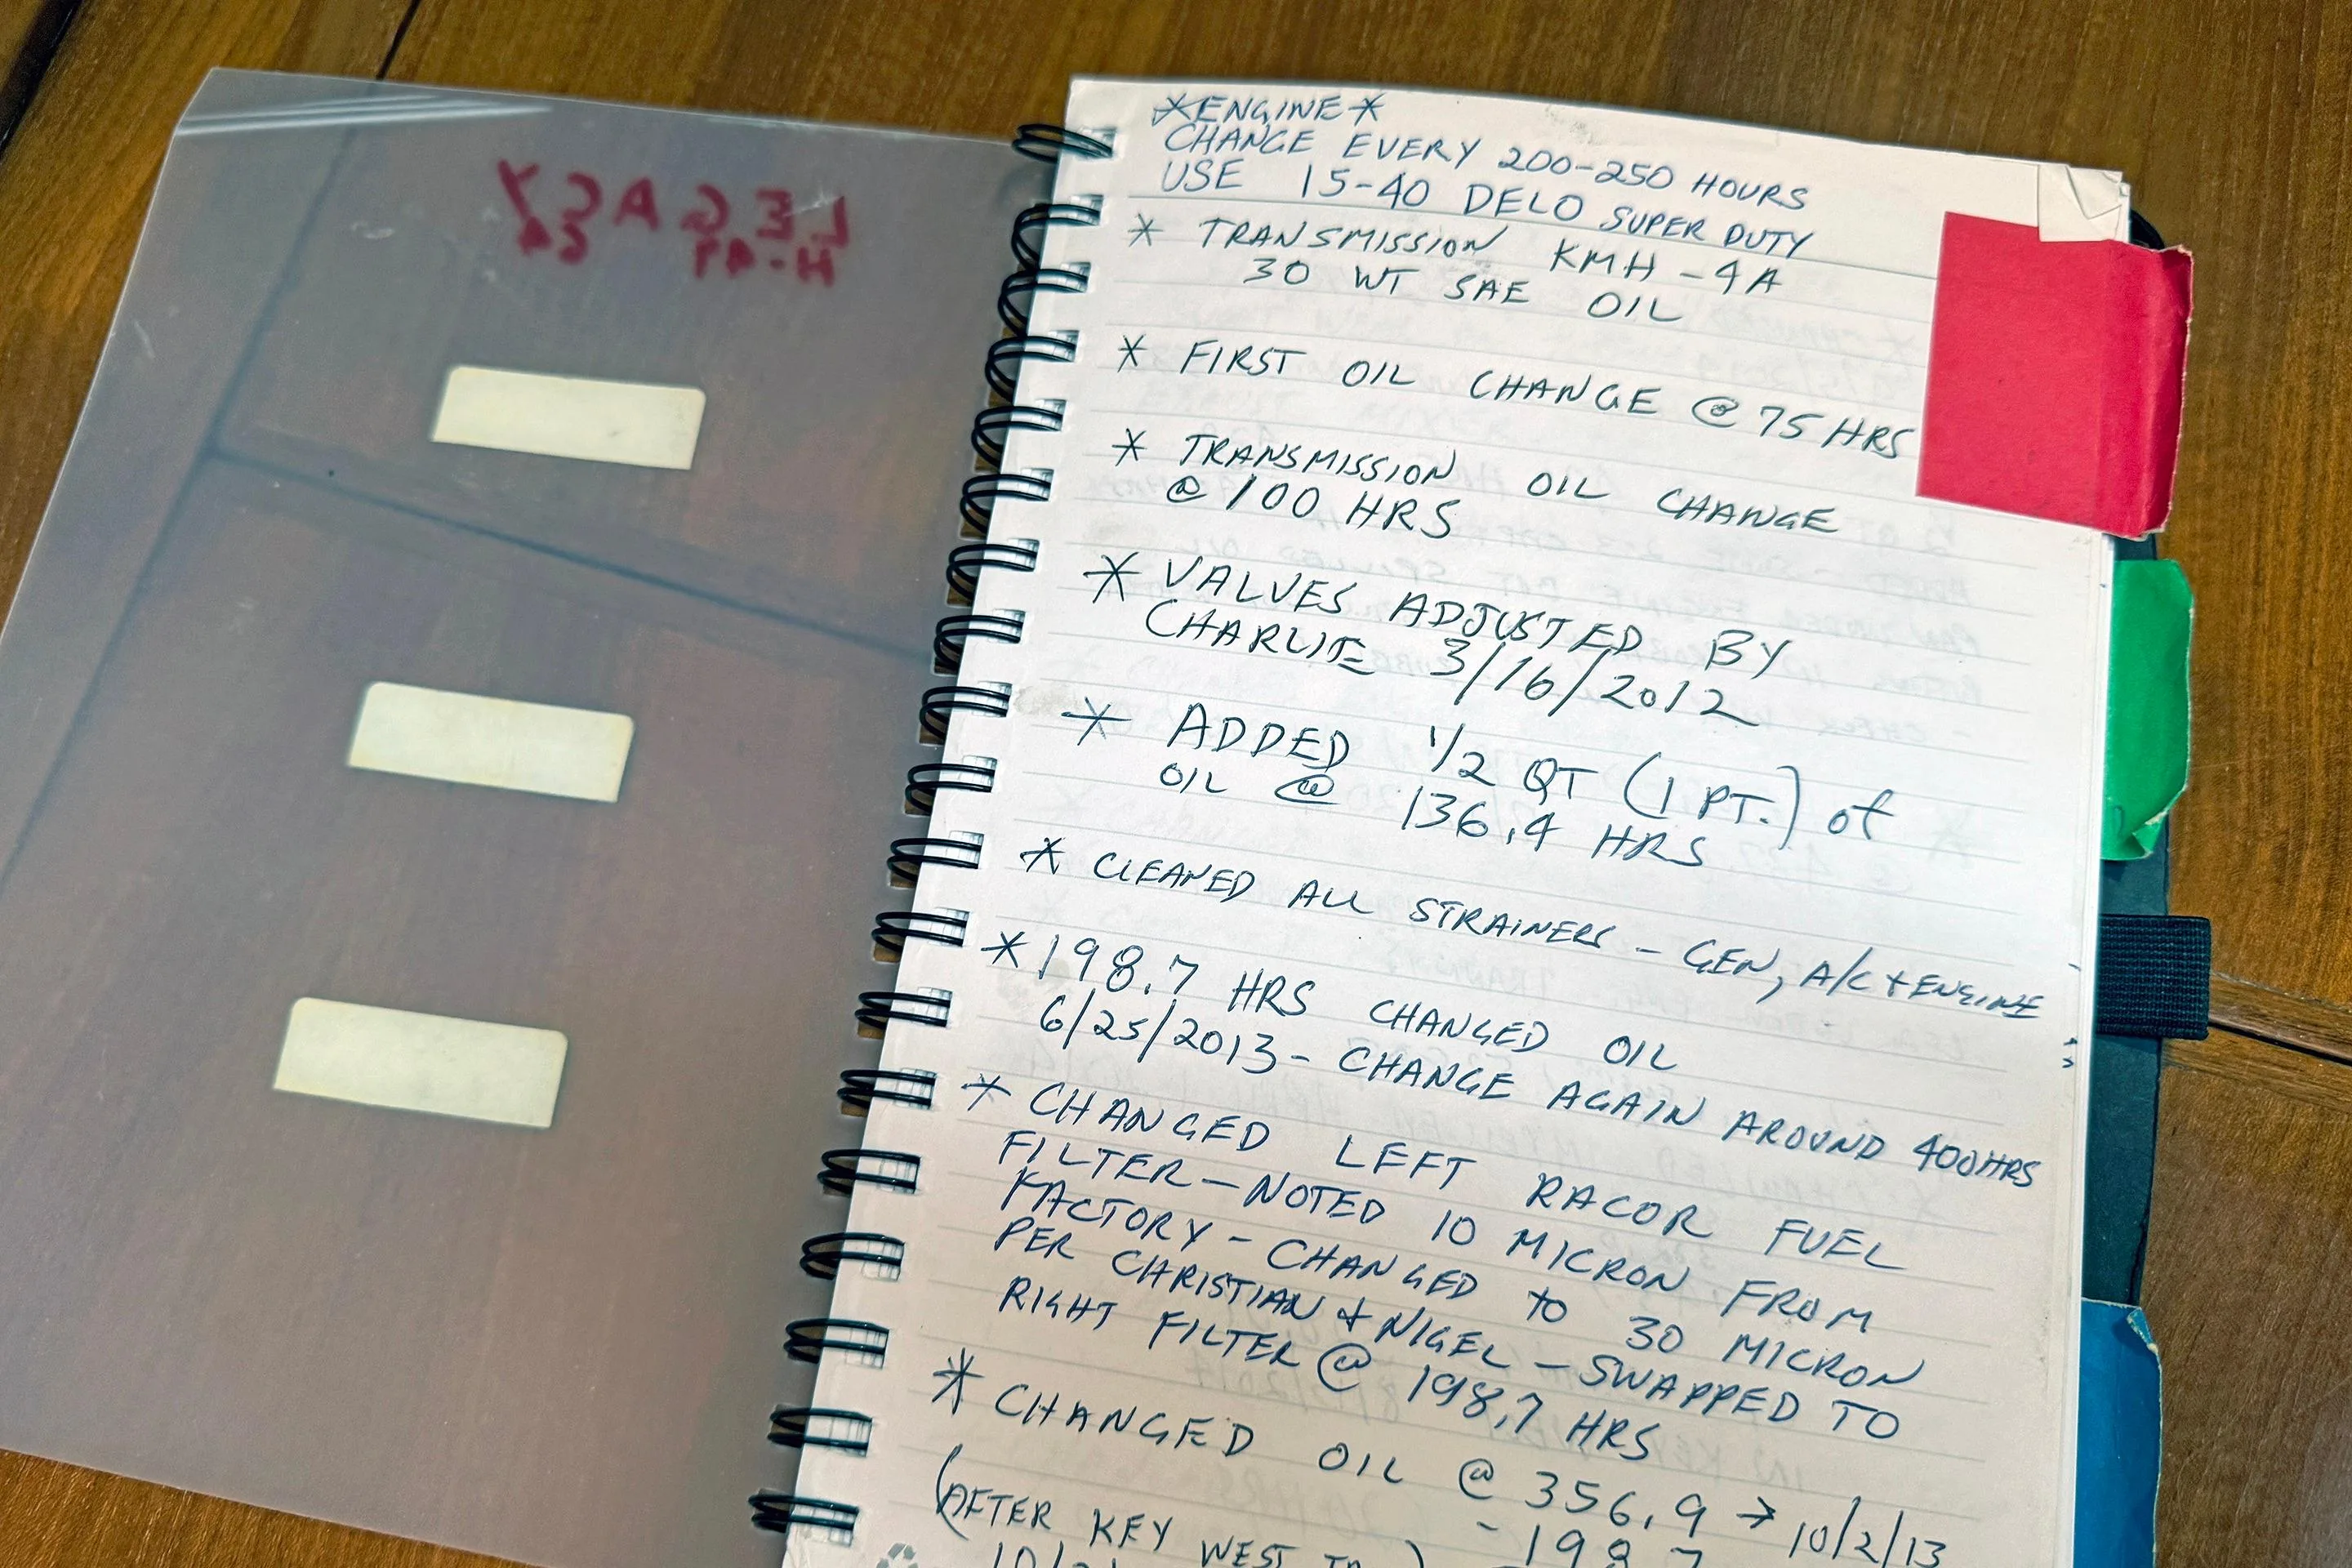 LEGACY
H-49 64
*ENGINE*
CHANGE EVERY 200-250 HOURS
USE 15-40 DELO SUPER DUTY
* TRANSMISSION KMH-4A
30 WT SAE OIL
* FIRST OIL CHANGE @ 75 HRS
* TRANSMISSION OIL CHANGE
@ 100 HRS
* VALVES ADJUSTED BY
CHARLIE 3/16/2012
* ADDED 1/2 QT (1 PT.) of
OIL @ 136.4 HRS
* CLEANED ALL STRAINERS - GEN, A/C + ENGINE
* 198.7 HRS CHANGED OIL
6/25/2013 - CHANGE AGAIN AROUND 400HRS
* CHANGED LEFT RACOR FUEL
FILTER - NOTED 10 MICRON FROM
FACTORY - CHANGED TO 30 MICRON
PER CHRISTIAN + NIGEL - SWAPPED TO
RIGHT FILTER @ 198.7 HRS
* CHANGED OIL @ 356.9 → 10/2/13
(AFTER KEY WEST - 198.7